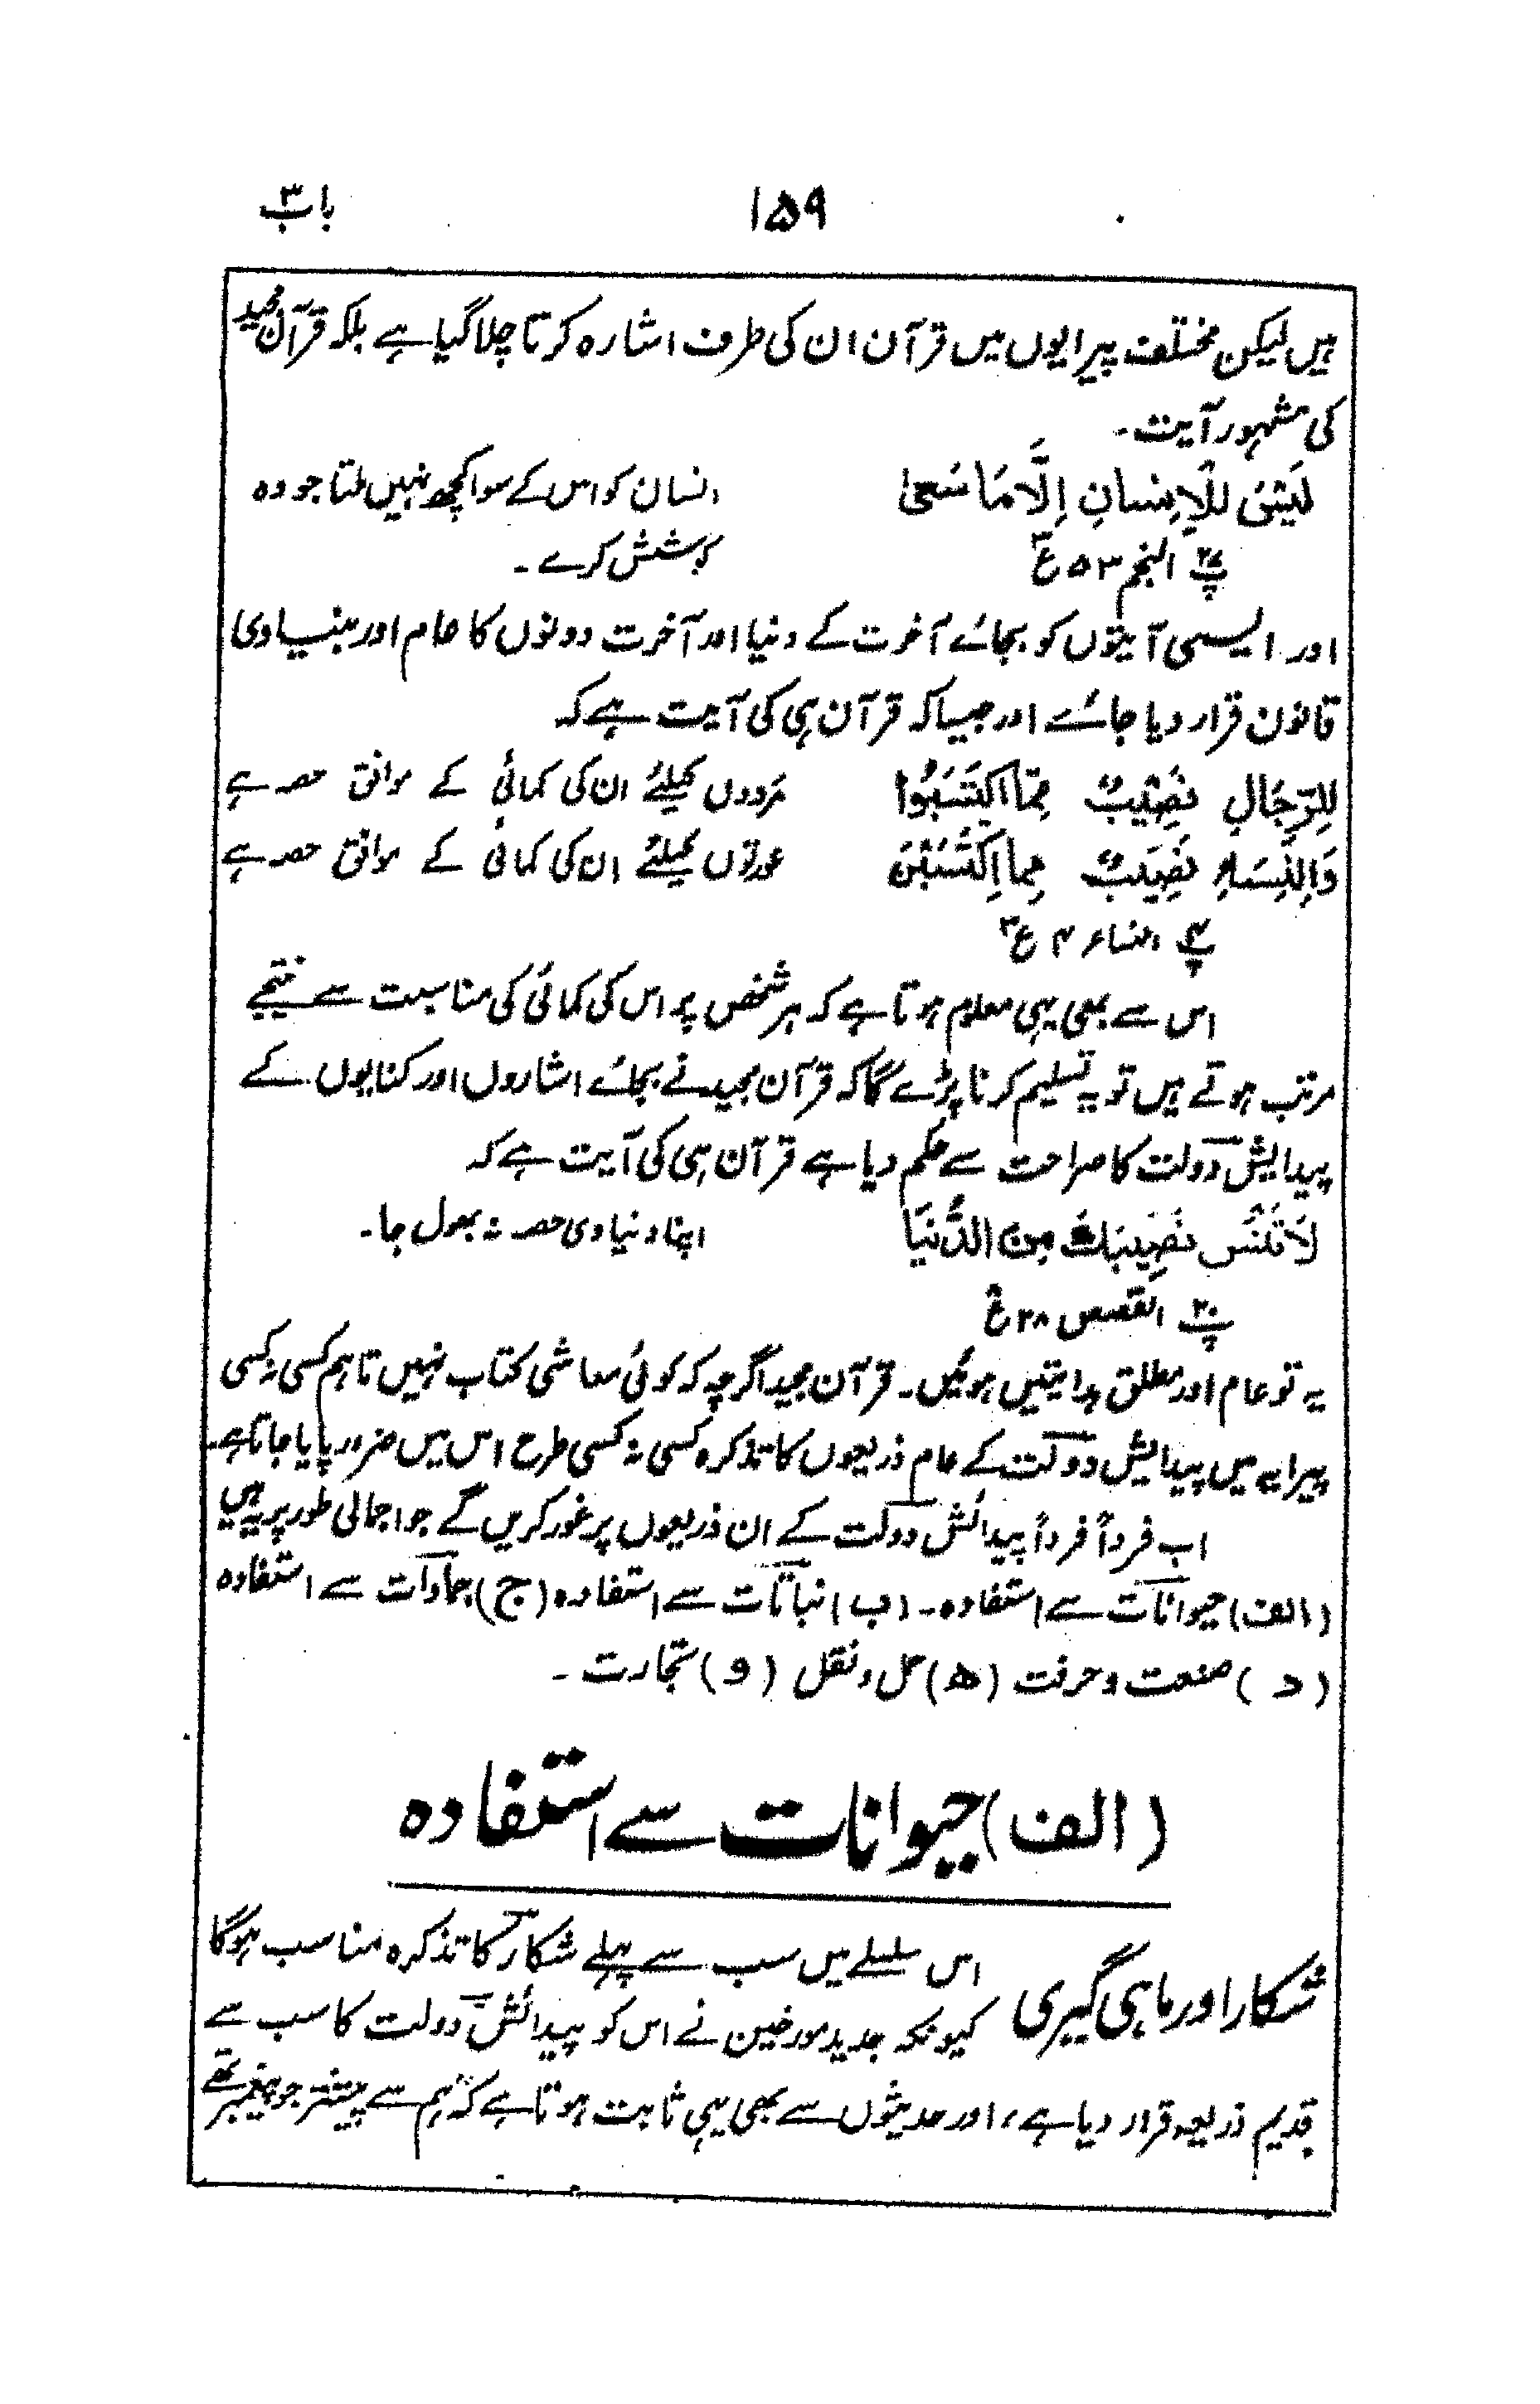 ۱۵۹ باب ۳
ہیں لیکن مختلف پیرایوں میں قرآن ان کی طرف اشارہ کرتا چلا گیا ہے بلکہ قرآن مجید
کی مشہور آیت۔
لَیْسَ لِلْاِنسانِ اِلَّا مَا سَعیٰ انسان کو اس کے سوا کچھ نہیں ملتا جو وہ
پ۲۷ النجم ۵۳ ع۳ کوشش کرے۔
اور ایسی آیتوں کو بجائے آخرت کے دنیا اور آخرت دونوں کا عام اور بنیادی
قانون قرار دیا جائے اور جیسا کہ قرآن ہی کی آیت ہے کہ
لِلرِّجَالِ نَصِیْبٌ مِّمَّا اکْتَسَبُوْا مَردوں کیلئے ان کی کمائی کے موافق حصہ ہے
وَلِلنِّسَاءِ نَصِیْبٌ مِمااکْتَسَبْنَ عورتوں کیلئے ان کی کمائی کے موافق حصہ ہے
پ۴ النساء ۴ ع۳
اس سے بھی یہی معلوم ہوتا ہے کہ ہر شخص پر اس کی کمائی کی مناسبت سے نتیجے
مرتب ہوتے ہیں تو یہ تسلیم کرنا پڑے گا کہ قرآن مجید نے بجائے اشاروں اور کنایوں کے
پیدایش دولت کا صراحت سے حکم دیا ہے قرآن ہی کی آیت ہے کہ
لَا تَنْسَ نَصِیْبَكَ مِنَ الدُّنْیَا اپنا دنیاوی حصہ نہ بھول جا۔
پ۲۰ القصص ۲۸ ع۸
یہ تو عام اور مطلق ہدایتیں ہوئیں۔ قرآن مجید اگرچہ کہ کوئی معاشی کتاب نہیں تاہم کسی نہ کسی
پیرایے میں پیدایش دولت کے عام ذریعوں کا تذکرہ کسی نہ کسی طرح اس میں ضرور پایا جاتا ہے۔
اب فرداً فرداً پیدائش دولت کے ان ذریعوں پر غور کریں گے جو اجمالی طور پر یہ ہیں
(الف) حیوانات سے استفادہ۔ (ب) نباتات سے استفادہ (ج) جمادات سے استفادہ
(د) صنعت و حرفت (ھ) حمل و نقل (و) تجارت۔
(الف) حیوانات سے استفادہ
شکار اور ماہی گیری اس سلسلے میں سب سے پہلے شکار کا تذکرہ مناسب ہوگا
کیونکہ جدید مورخین نے اس کو پیدائش دولت کا سب سے
قدیم ذریعہ قرار دیا ہے، اور حدیثوں سے بھی یہی ثابت ہوتا ہے کہ ہم سے پیشتر جو پیغمبر تھے